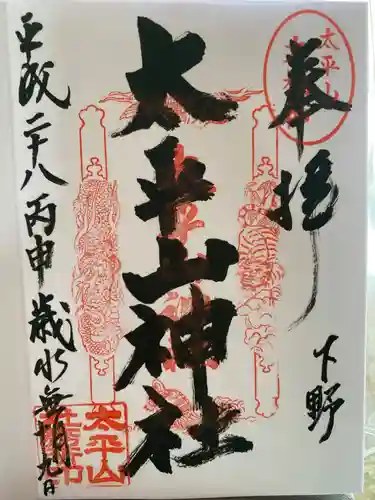 奉拝
下野
太平山神社
平成二十八丙申歳水無月九日
太平山
太平山